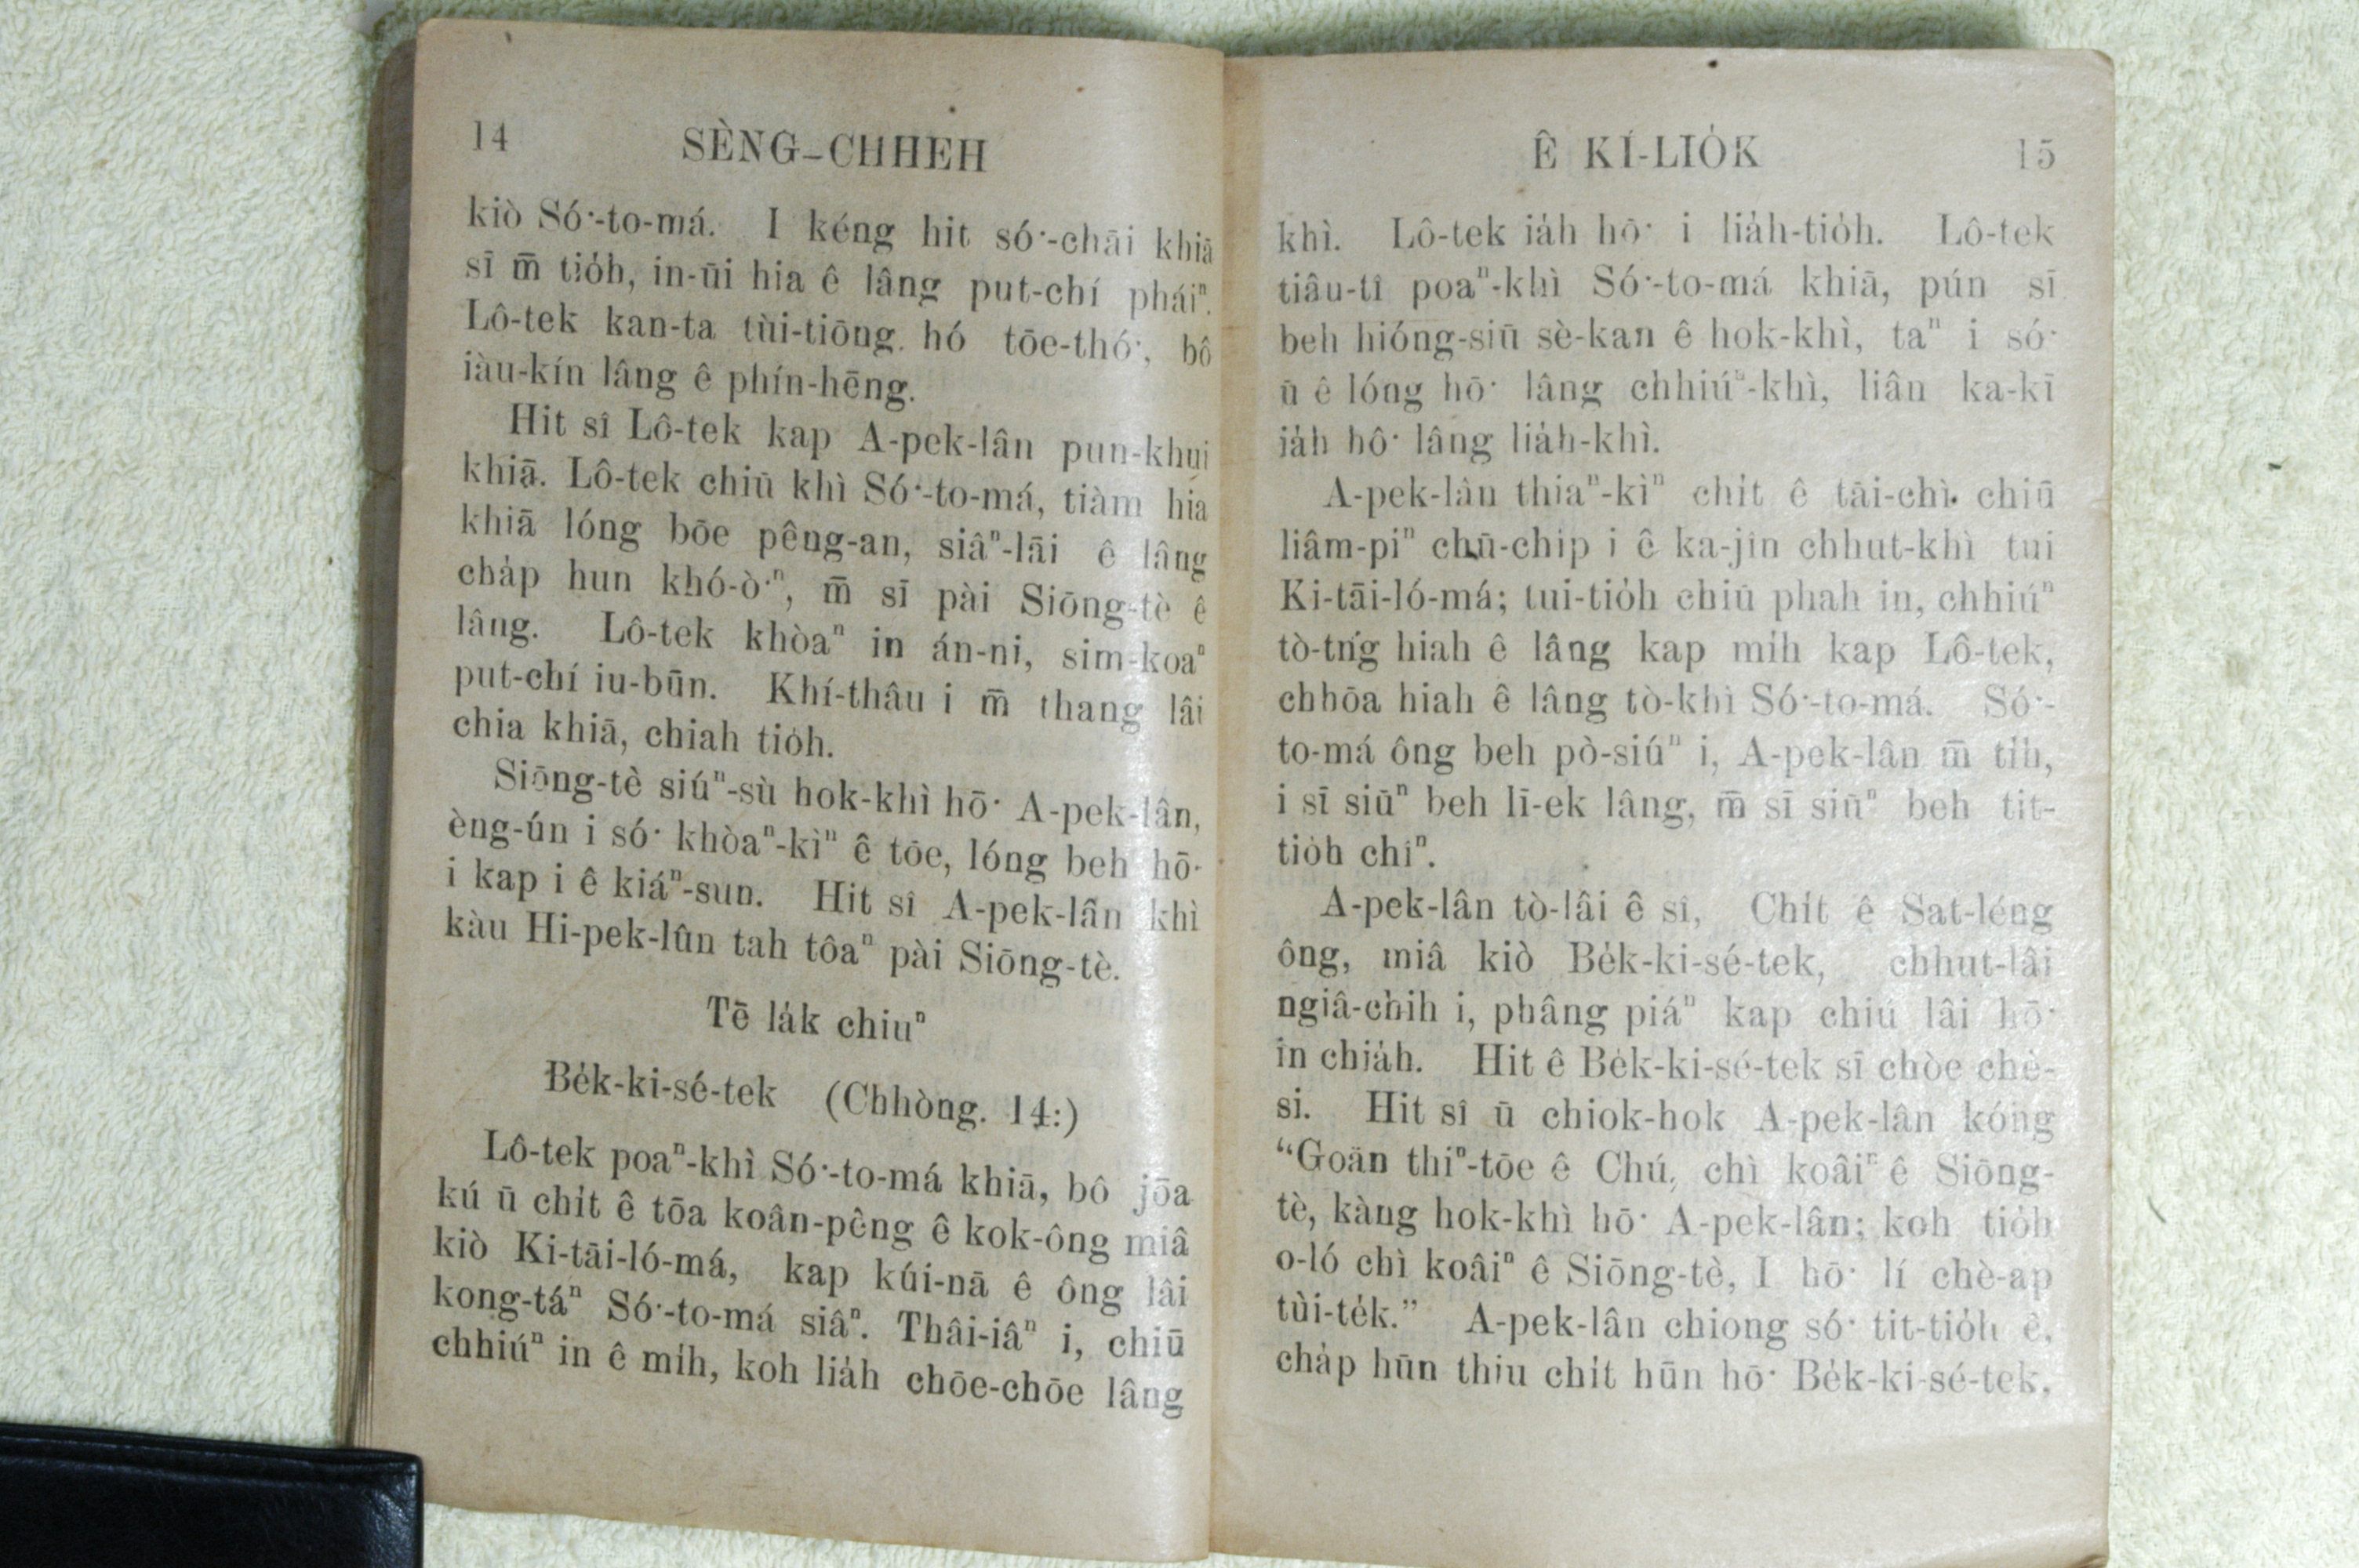 14 SÈNG-CHHEH
kiò Só͘-to-má. I kéng hit só͘-chāi khiā
sī m̄ tio̍h, in-ūi hia ê lâng put-chí pháiⁿ.
Lô-tek kan-ta tùi-tiōng hó tōe-thó͘, bô
iàu-kín lâng ê phín-hēng.
Hit sî Lô-tek kap A-pek-lân pun-khui
khiā. Lô-tek chiū khì Só͘-to-má, tiàm hia
khiā lóng bōe pêng-an, siâⁿ-lāi ê lâng
cha̍p hun khó-ò͘ⁿ, m̄ sī pài Siōng-tè ê
lâng. Lô-tek khòaⁿ in án-ni, sim-koaⁿ
put-chí iu-būn. Khí-thâu i m̄ thang lâi
chia khiā, chiah tio̍h.
Siōng-tè siúⁿ-sù hok-khì hō͘ A-pek-lân,
èng-ún i só͘ khòaⁿ-kìⁿ ê tōe, lóng beh hō͘
i kap i ê kiáⁿ-sun. Hit sî A-pek-lân khì
kàu Hi-pek-lûn tah tôaⁿ pài Siōng-tè.
Tē la̍k chiuⁿ
Be̍k-ki-sé-tek (Chhòng. 14:)
Lô-tek poaⁿ-khì Só͘-to-má khiā, bô jōa
kú ū chi̍t ê tōa koân-pêng ê kok-ông miâ
kiò Ki-tāi-ló-má, kap kúi-nā ê ông lâi
kong-táⁿ Só͘-to-má siâⁿ. Thâi-iâⁿ i, chiū
chhiúⁿ in ê mi̍h, koh lia̍h chōe-chōe lâng
Ê KÍ-LIO̍K 15
khì. Lô-tek ia̍h hō͘ i lia̍h-tio̍h. Lô-tek
tiâu-tî poaⁿ-khì Só͘-to-má khiā, pún sī
beh hióng-siū sè-kan ê hok-khì, taⁿ i só͘
ū ê lóng hō͘ lâng chhiúⁿ-khì, liân ka-kī
ia̍h hô͘ lâng lia̍h-khì.
A-pek-lân thiaⁿ-kìⁿ chi̍t ê tāi-chì. chiū
liâm-piⁿ chū-chip i ê ka-jîn chhut-khì tui
Ki-tāi-ló-má; tui-tio̍h chiū phah in, chhiúⁿ
tò-tńg hiah ê lâng kap mi̍h kap Lô-tek,
chhōa hiah ê lâng tò-khì Só͘-to-má. Só͘-
to-má ông beh pò-siúⁿ i, A-pek-lân m̄ ti̍h,
i sī siūⁿ beh lī-ek lâng, m̄ sī siūⁿ beh tit-
tio̍h chîⁿ.
A-pek-lân tò-lâi ê sî, Chi̍t ê Sat-léng
ông, miâ kiò Be̍k-ki-sé-tek, chhut-lâi
ngiâ-chih i, phâng piáⁿ kap chiú lâi hō͘
in chia̍h. Hit ê Be̍k-ki-sé-tek sī chòe chè-
si. Hit sî ū chiok-hok A-pek-lân kóng
“Goān thiⁿ-tōe ê Chú, chì koâiⁿ ê Siōng-
tè, kàng hok-khì hō͘ A-pek-lân; koh tio̍h
o-ló chì koâiⁿ ê Siōng-tè, I hō͘ lí chè-ap
tùi-te̍k.” A-pek-lân chiong só͘ tit-tio̍h ê,
cha̍p hūn thiu chi̍t hūn hō͘ Be̍k-ki-sé-tek,